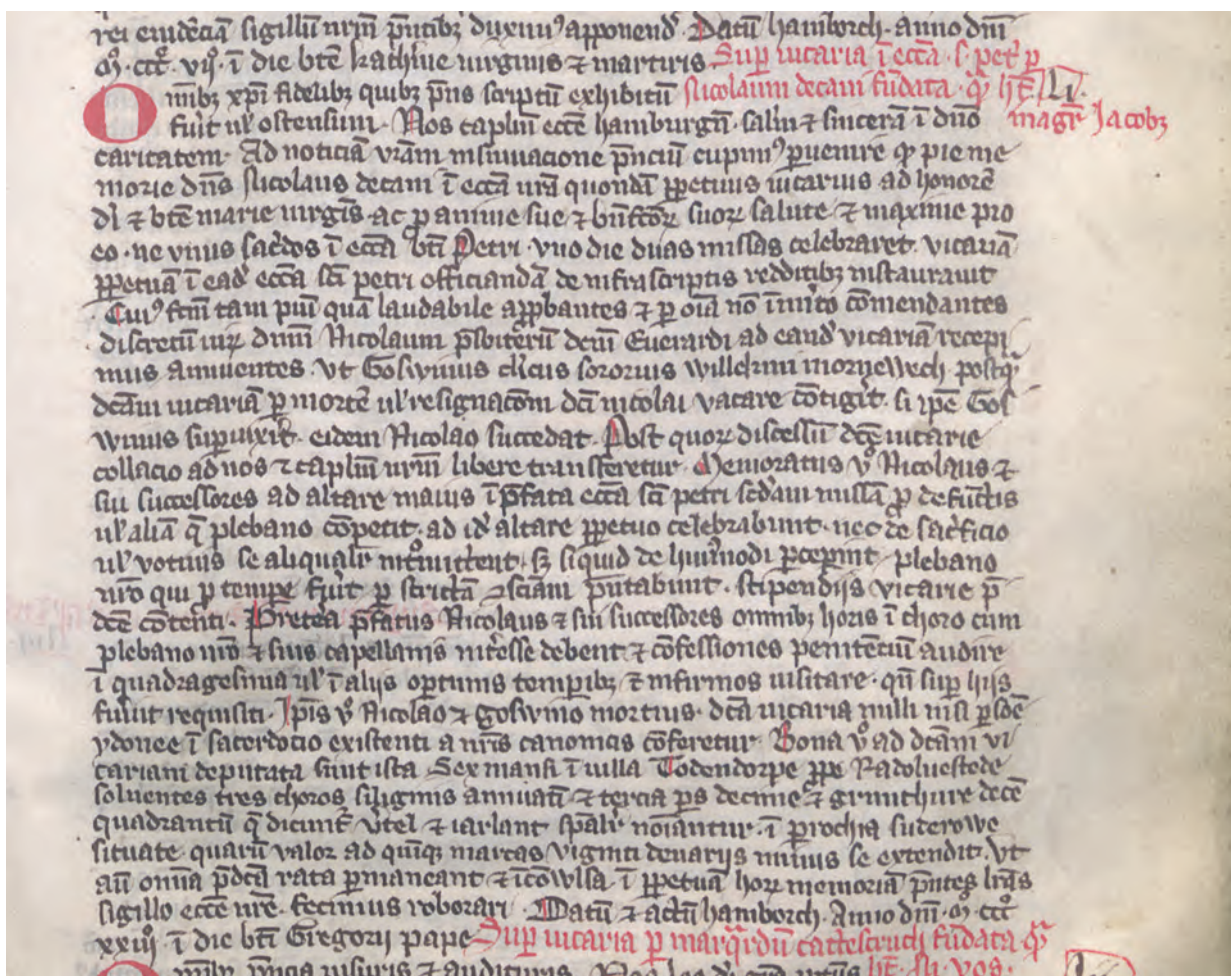 rei euidēciā sigillū nr̄m pn̄tibꝫ duximꝰ apponend̄. Datū hamborch. anno dn̄i
m̊. ccc̊. vij̊. ī die bt̄e kathīne uirginis ⁊ martiris Sup̱ uicaria ī ecc̄a. s. petͥ p̱
Omībꝫ xp̄i fidelibꝫ quibꝫ p̄ns scriptū exhibitū Nicolaum decani fūdata. q̄ ht̄
fuīt ul̓ ostensum. Nos capl̄m ecc̄e hamburgn̄. salūt̄ ⁊ sincerā ī dn̄o magr̄ Jacobꝫ
caritatem. Ad noticiā vr̄am insinuacione pn̄ciū cupimꝰ p̱uenire q̱ pie me
morie dn̄s Nicolaus decani ī ecc̄a nr̄a quondā pp̱etuus uicarius ad honorē
dī ⁊ bt̄e marie uirgīs ac p̱ anime sue ⁊ bn̄fc̄oꝝ suoꝝ salute ⁊ maxime pro
eo. ne vnus sac̄dos ī ecc̄a bt̄i Petri. vno die duas missas celebraret. vicariā
pp̱etuā ī ead̓ ecc̄a sc̄i petri officiandā de infrascriptis redditibꝫ instaurauit
Cuiꝰ fc̄m tam piū quā laudabile app̱bantes ⁊ p̱ oīa nō īm̓ito cōmendantes
discretū uiꝝ dn̄m Nicolaum p̄sbiterū dc̄m Euerardi ad eand̓ vicariā recepi
mus annuentes. vt Goswinus cl̓icus sororius willelmi mornewech postq̄
dc̄am uicariā p̱ mortē ul̓ resignacōm dc̄i nicolai vacare cōtigīt. si ip̄e Gos
winus sup̱uixīt. eidem Nicolao succedat. Post quoꝝ discessū dc̄e uicarie
collacio ad nos ⁊ capl̄m nr̄m libere transferetur. Memoratus v̊ Nicolaus ⁊
sui successores ad altare maius ī p̄fata ecc̄a sc̄i petri sc̄dam missā p̱ defūctis
ul̓ aliā q̄ plebano cōpetit. ad id̓ altare pp̱etuo celebrabunt. nec de sac̄ficio
ul̓ votiuis se aliqualīt int̊mittent. sꝫ siquid de huiꝰmodi p̱cep̱int. plebano
nr̄o qui p̱ tempe fūīt p̱ strictā ɔsciam p̄ntabunt. stipendijs vicarie p̄
dc̄e cōtenti. Pretea p̄fatus Nicolaus ⁊ sui successores omnibꝫ horis ī choro cum
plebano nr̄o ⁊ suis capellanis int̓esse debent ⁊ cōfessiones penitēciū audire
ī quadragesima ul̓ ī alijs oportunis temp̱ibꝫ ⁊ infirmos uisitare. qn̄ sup̱ hijs
fuīnt requisiti. Ip̄is v̊ Nicolao ⁊ goswino mortuis. dc̄a uicaria nulli nisi p̱sōe
ydonee ī sacerdocio existenti a nr̄is canonicis cōferetur. Bona v̊ ad dc̄am vi
cariam deputata sunt ista Sex mansi ī uilla Todendorpe pp̱e Radoluestede
soluentes tres choros siliginis annuatī ⁊ tercia p̱s decime ⁊ grunthure decē
quadrantū q̄ dicunt̄ v̓tel ⁊ iarlant sp̄alīt noīantur. ī p̱rochia suterowe
situate. quarū valor ad quīqꝫ marcas viginti denarijs minus se extendit. vt
aū om̄ia p̄dc̄a rata p̱maneant ⁊ īcōwlsa. ī pp̱etuā hoꝝ memoriā p̄ntes lr̄as
sigillo ecc̄e nr̄e. fecimus roborari. Datū ⁊ actū hamborch. Anno dn̄i. m̊. ccc̊
xxiiij̊. ī die bt̄i Gregorij pape Sup̱ uicaria p̱ marq̄rdū cattestruch fūdata q̄